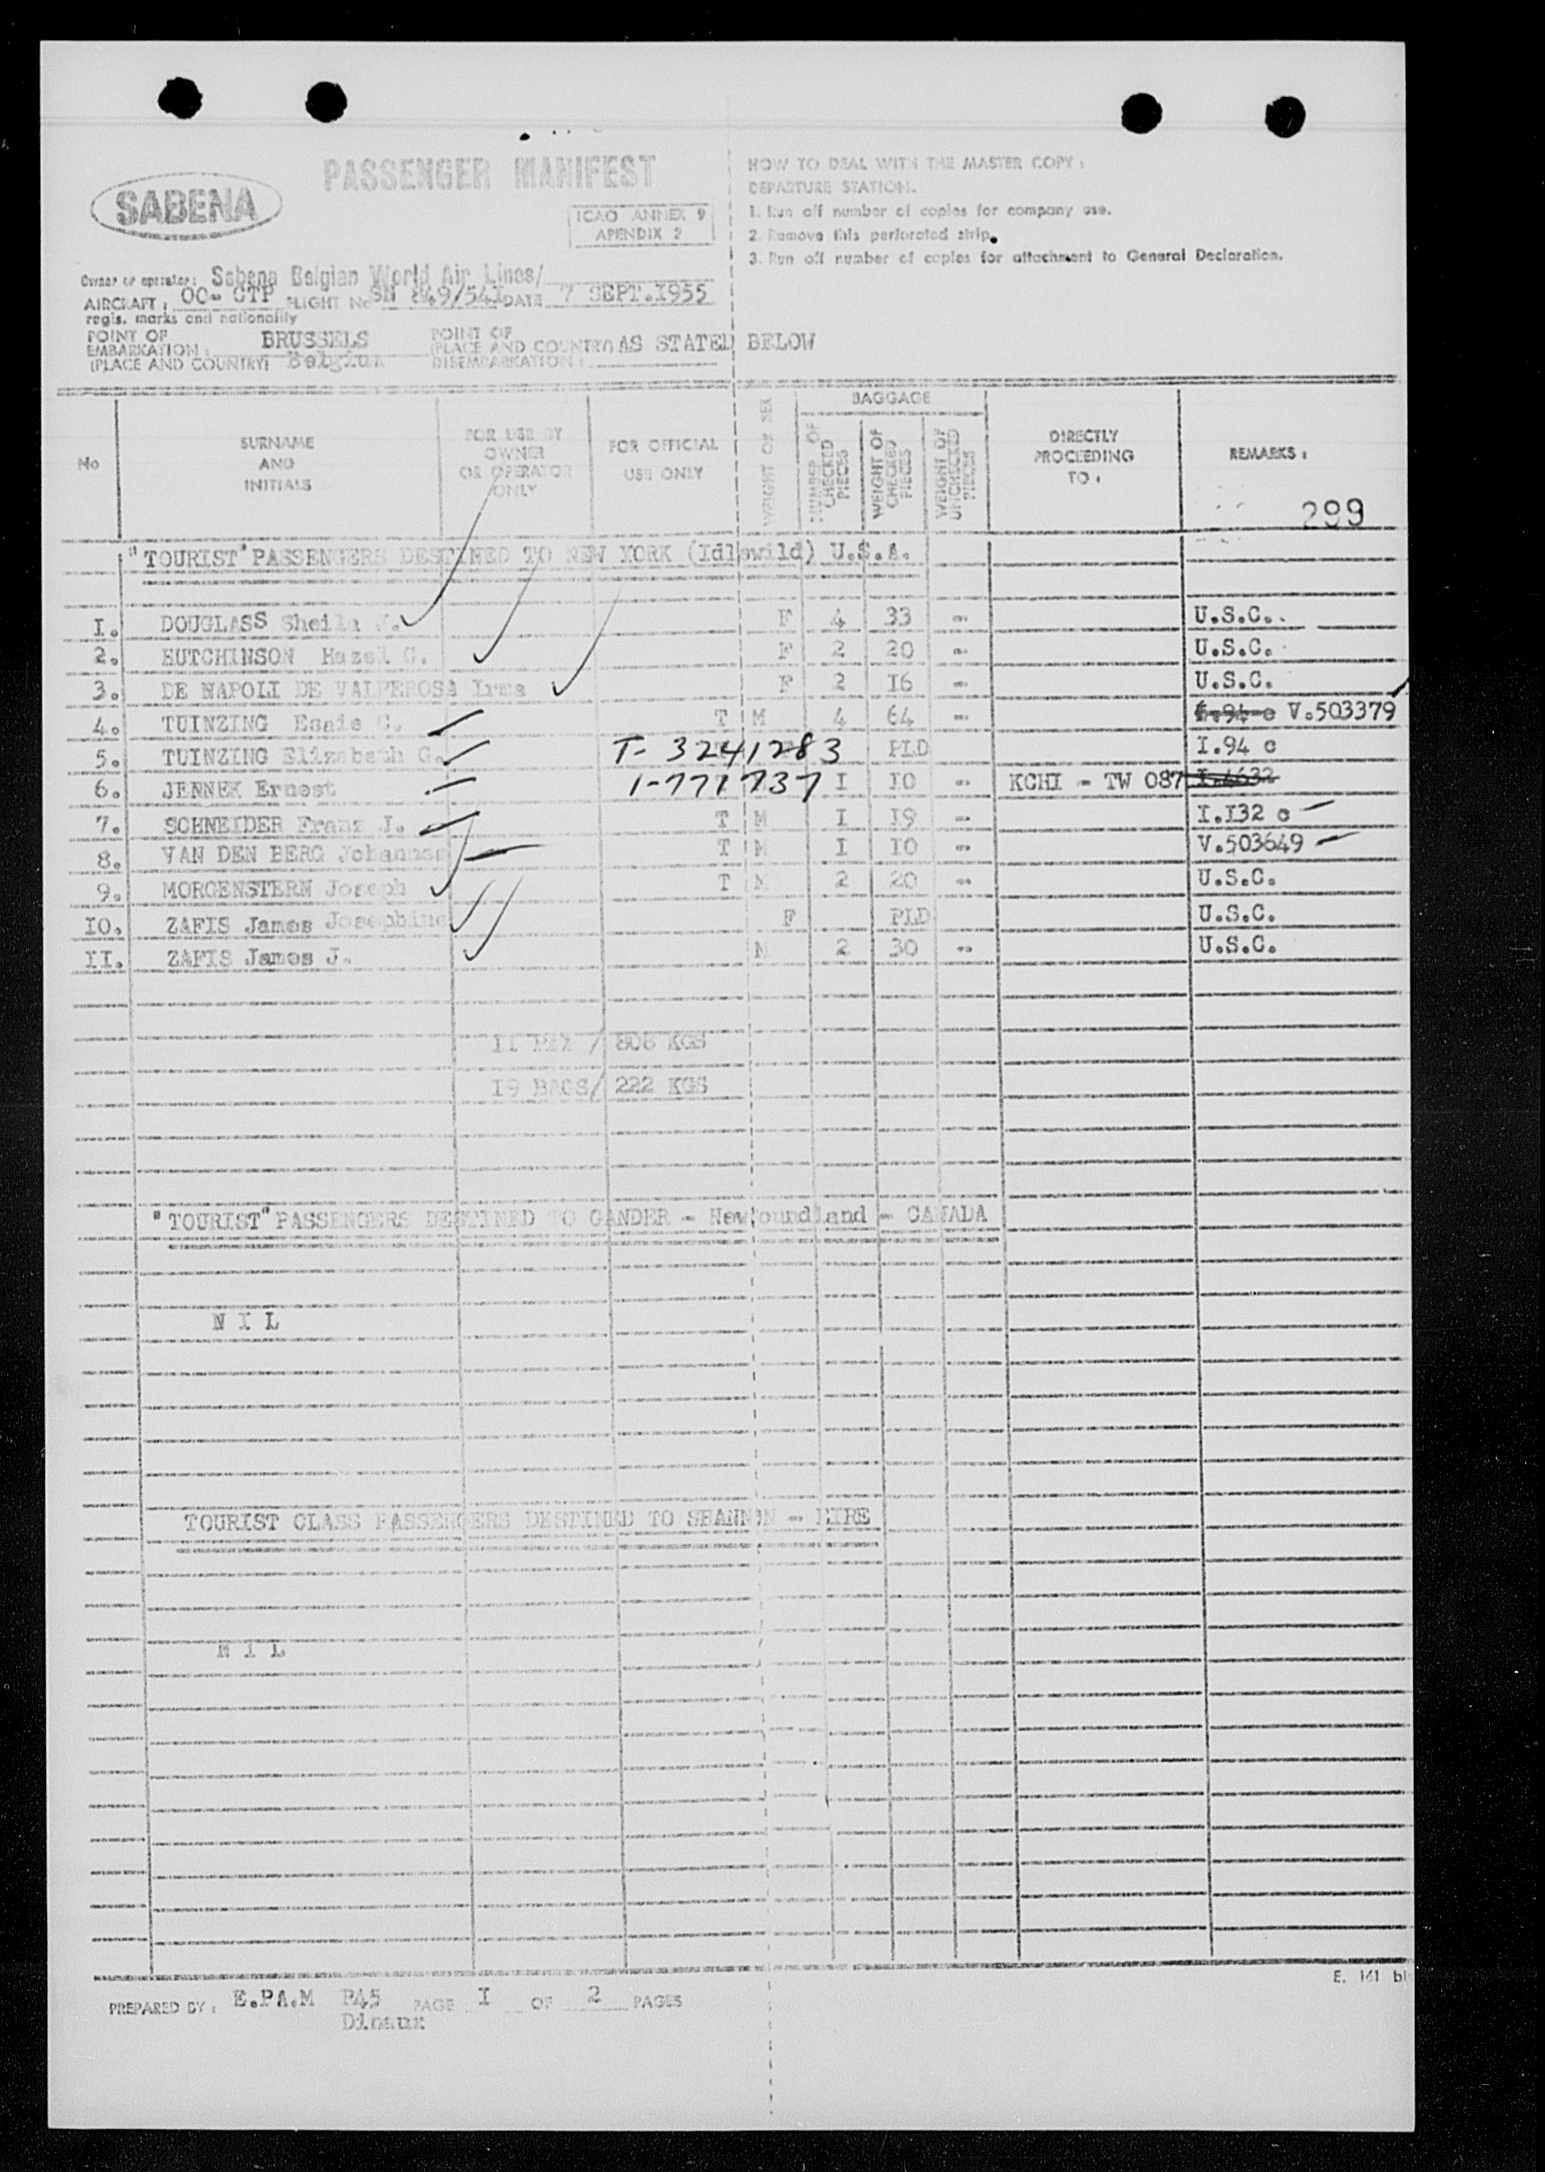 PASSENGER MANIFEST
SABENA
ICAO ANNEX 9
APENDIX 2
HOW TO DEAL WITH THE MASTER COPY :
DEPARTURE STATION.
1. Run off number of copies for company use.
2. Remove this perforated strip.
3. Run off number of copies for attachment to General Declaration.
Owner or operator: Sabena Belgian World Air Lines/
AIRCRAFT : OO- CTP FLIGHT No SN /541 DATE 7 SEPT.1955
regis. marks and nationality
POINT OF EMBARKATION : (PLACE AND COUNTRY) BRUSSELS Belgium
POINT OF (PLACE AND COUNTRY) DISEMBARKATION : AS STATED BELOW
No
SURNAME AND INITIALS
FOR USE BY OWNER OR OPERATOR ONLY
FOR OFFICIAL USE ONLY
WEIGHT OR SEX
BAGGAGE
NUMBER OF CHECKED PIECES
WEIGHT OF CHECKED PIECES
WEIGHT OF UNCHECKED PIECES
DIRECTLY PROCEEDING TO :
REMARKS :
299
"TOURIST" PASSENGERS DESTINED TO NEW YORK (Idlewild) U.S.A.
I. DOUGLASS Sheila F 4 33 - U.S.C.
2. HUTCHINSON Hazel G. F 2 20 - U.S.C.
3. DE NAPOLI DE VALPEROSA Irma F 2 I6 - U.S.C.
4. TUINZING Essie C. T M 4 64 - I.94 c V.503379
5. TUINZING Elizabeth G. T- 3241283 PLD I.94 c
6. JENNEK Ernest 1-771737 I I0 - KCHI - TW 087 I.4632
7. SCHNEIDER Franz J. T M I I9 - I.I32 c
8. VAN DEN BERG Johannes T M I I0 - V.503649
9. MORGENSTERN Joseph T M 2 20 - U.S.C.
I0. ZAFIS James Josephine F PLD U.S.C.
II. ZAFIS James J. M 2 30 - U.S.C.
II PAX / 808 KGS
I9 BAGS/ 222 KGS
"TOURIST" PASSENGERS DESTINED TO GANDER - Newfoundland - CANADA
N I L
TOURIST CLASS PASSENGERS DESTINED TO SHANNON - EIRE
N I L
E. 161 b
PREPARED BY : E.PA.M P45 PAGE I OF 2 PAGES
Dinaux